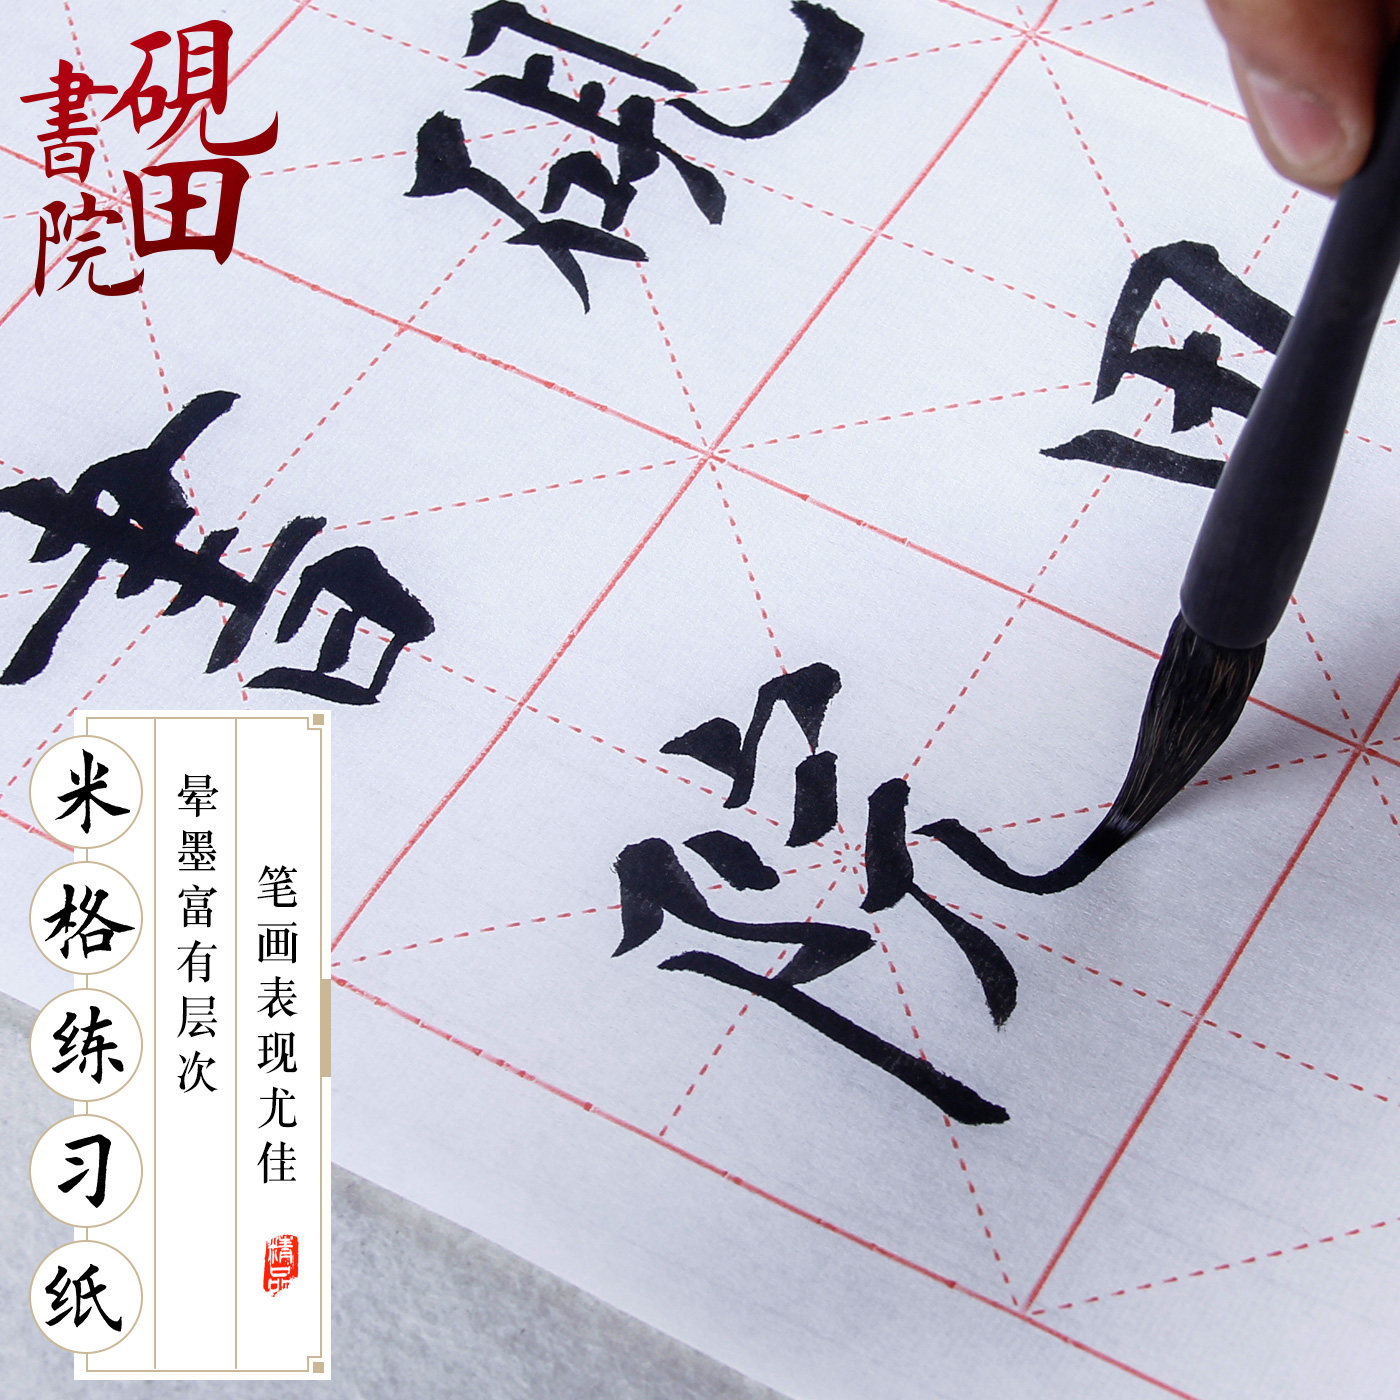 硯田
書院
硯田
書院
米格练习纸
笔画表现尤佳
晕墨富有层次
精品